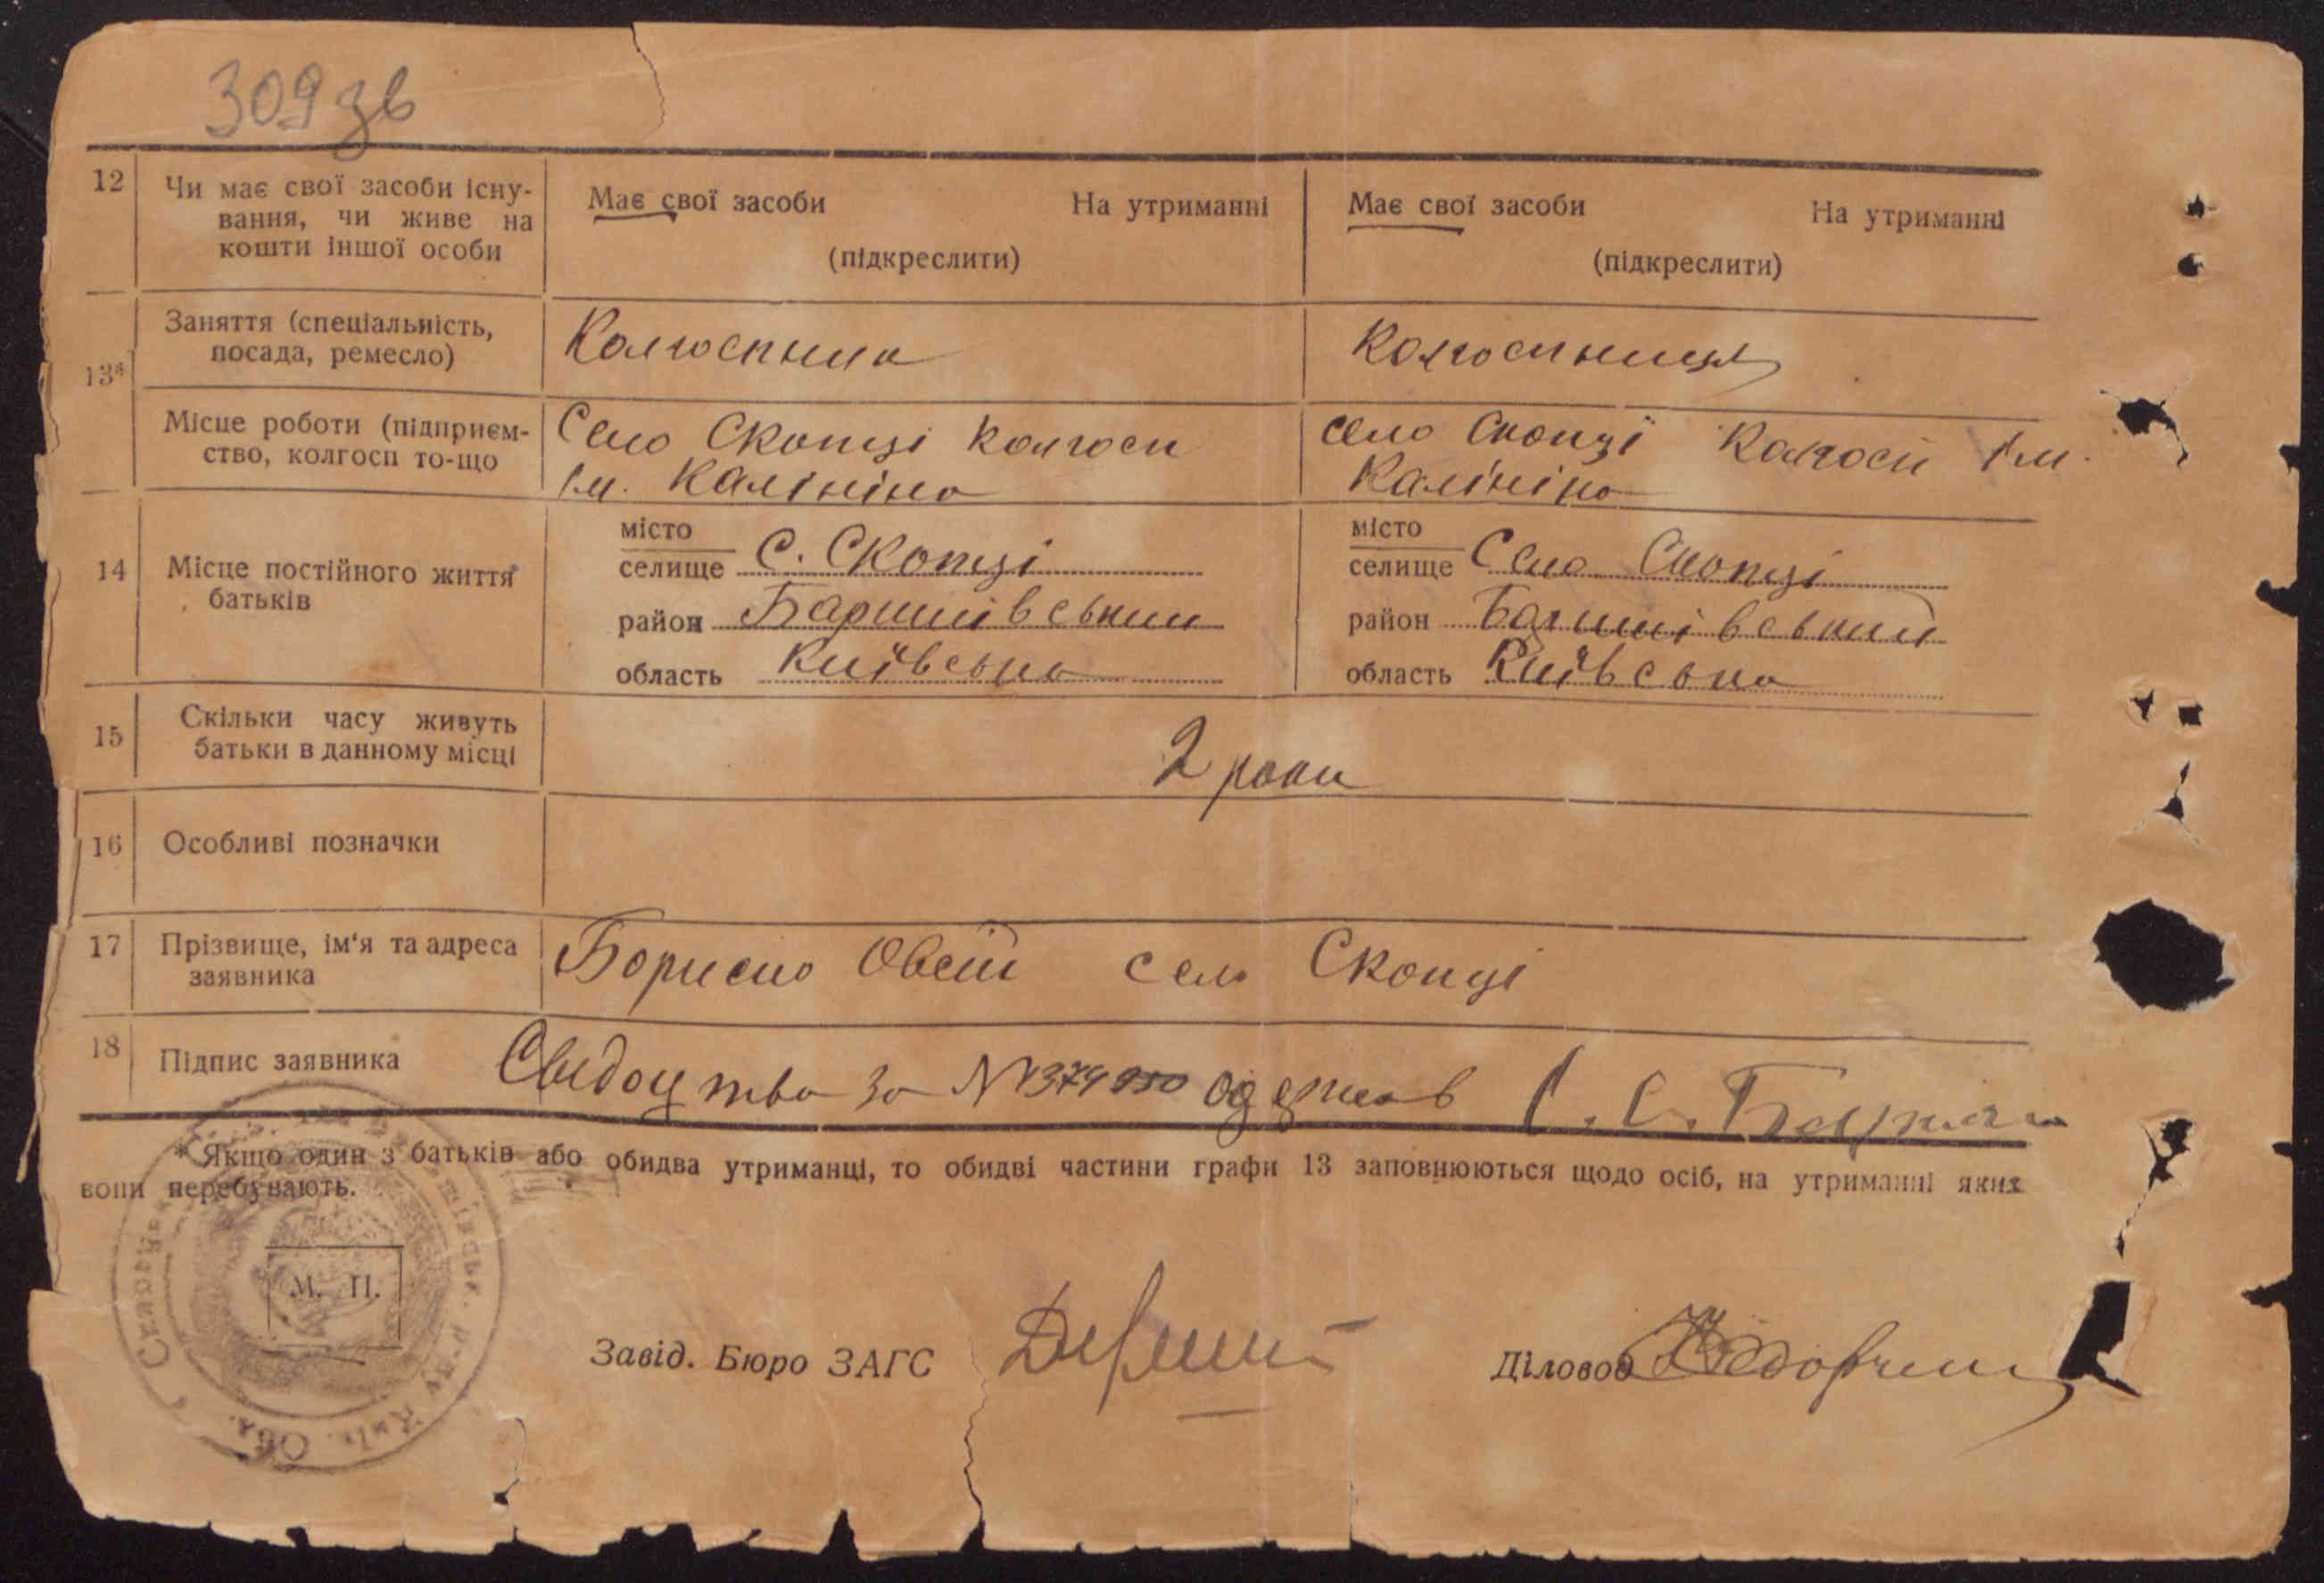 309 зв
12 Чи має свої засоби існу-
вання, чи живе на
кошти іншої особи
Має свої засоби На утриманні
(підкреслити)
Має свої засоби На утриманні
(підкреслити)
13*
Заняття (спеціальність,
посада, ремесло)
Колгоспник
Колгоспниця
Місце роботи (підприєм-
ство, колгосп то-що
Село Скопці колгосп
ім. Калініна
село Скопці Колгосп ім.
Калініна
14 Місце постійного життя
батьків
місто
селище С. Скопці
район Баришівський
область Київська
місто
селище Село Скопці
район Баришівський
область Київська
15 Скільки часу живуть
батьки в данному місці
2 роки
16 Особливі позначки
17 Прізвище, ім'я та адреса
заявника
Овсій село Скопці
18 Підпис заявника
Свидоцтво за № одержав
* Якщо один з батьків або обидва утриманці, то обидві частини графи 13 заповнюються щодо осіб, на утриманні яких
вони перебувають.
М. П.
Завід. Бюро ЗАГС
Діловод